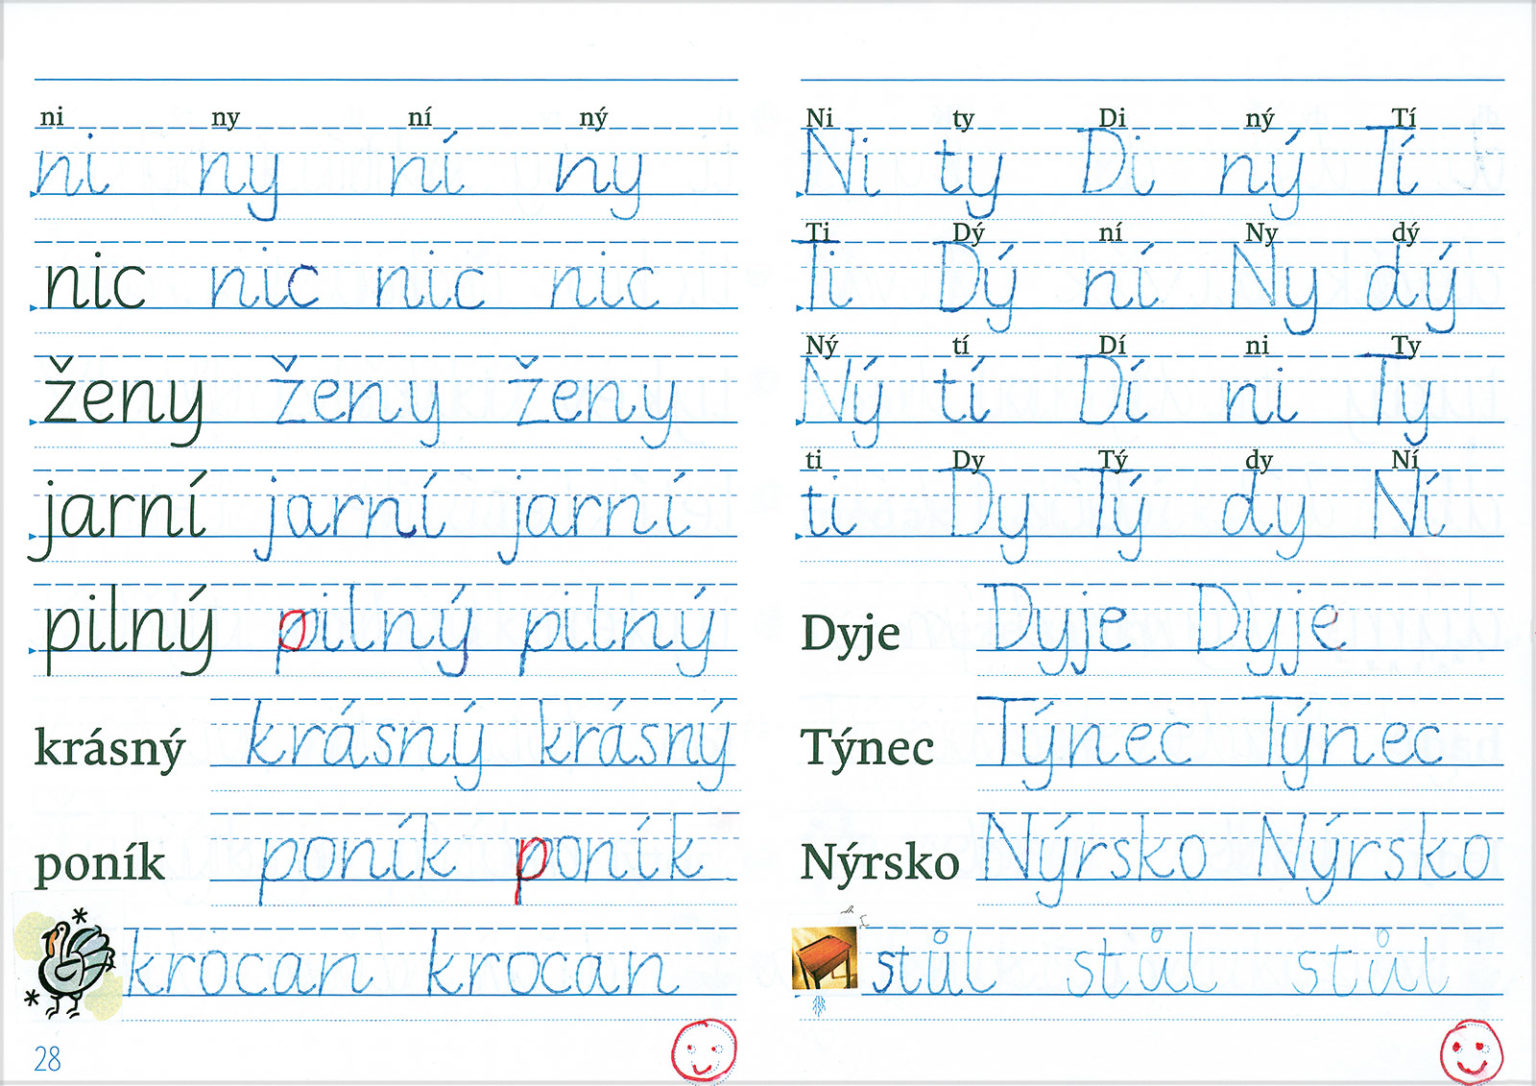 ni ny ní ný
ni ny ní ny
nic nic nic nic
ženy ženy ženy
jarní jarní jarní
pilný pilný pilný
krásný krásný krásný
poník poník poník
krocan krocan
28
Ni ty Di ný Tí
Ni ty Di ný Tí
Ti Dý ní Ny dý
Ti Dý ní Ny dý
Ný tí Dí ni Ty
Ný tí Dí ni Ty
ti Dy Tý dy Ní
ti Dy Tý dy Ní
Dyje Dyje Dyje
Týnec Týnec Týnec
Nýrsko Nýrsko Nýrsko
stůl stůl stůl